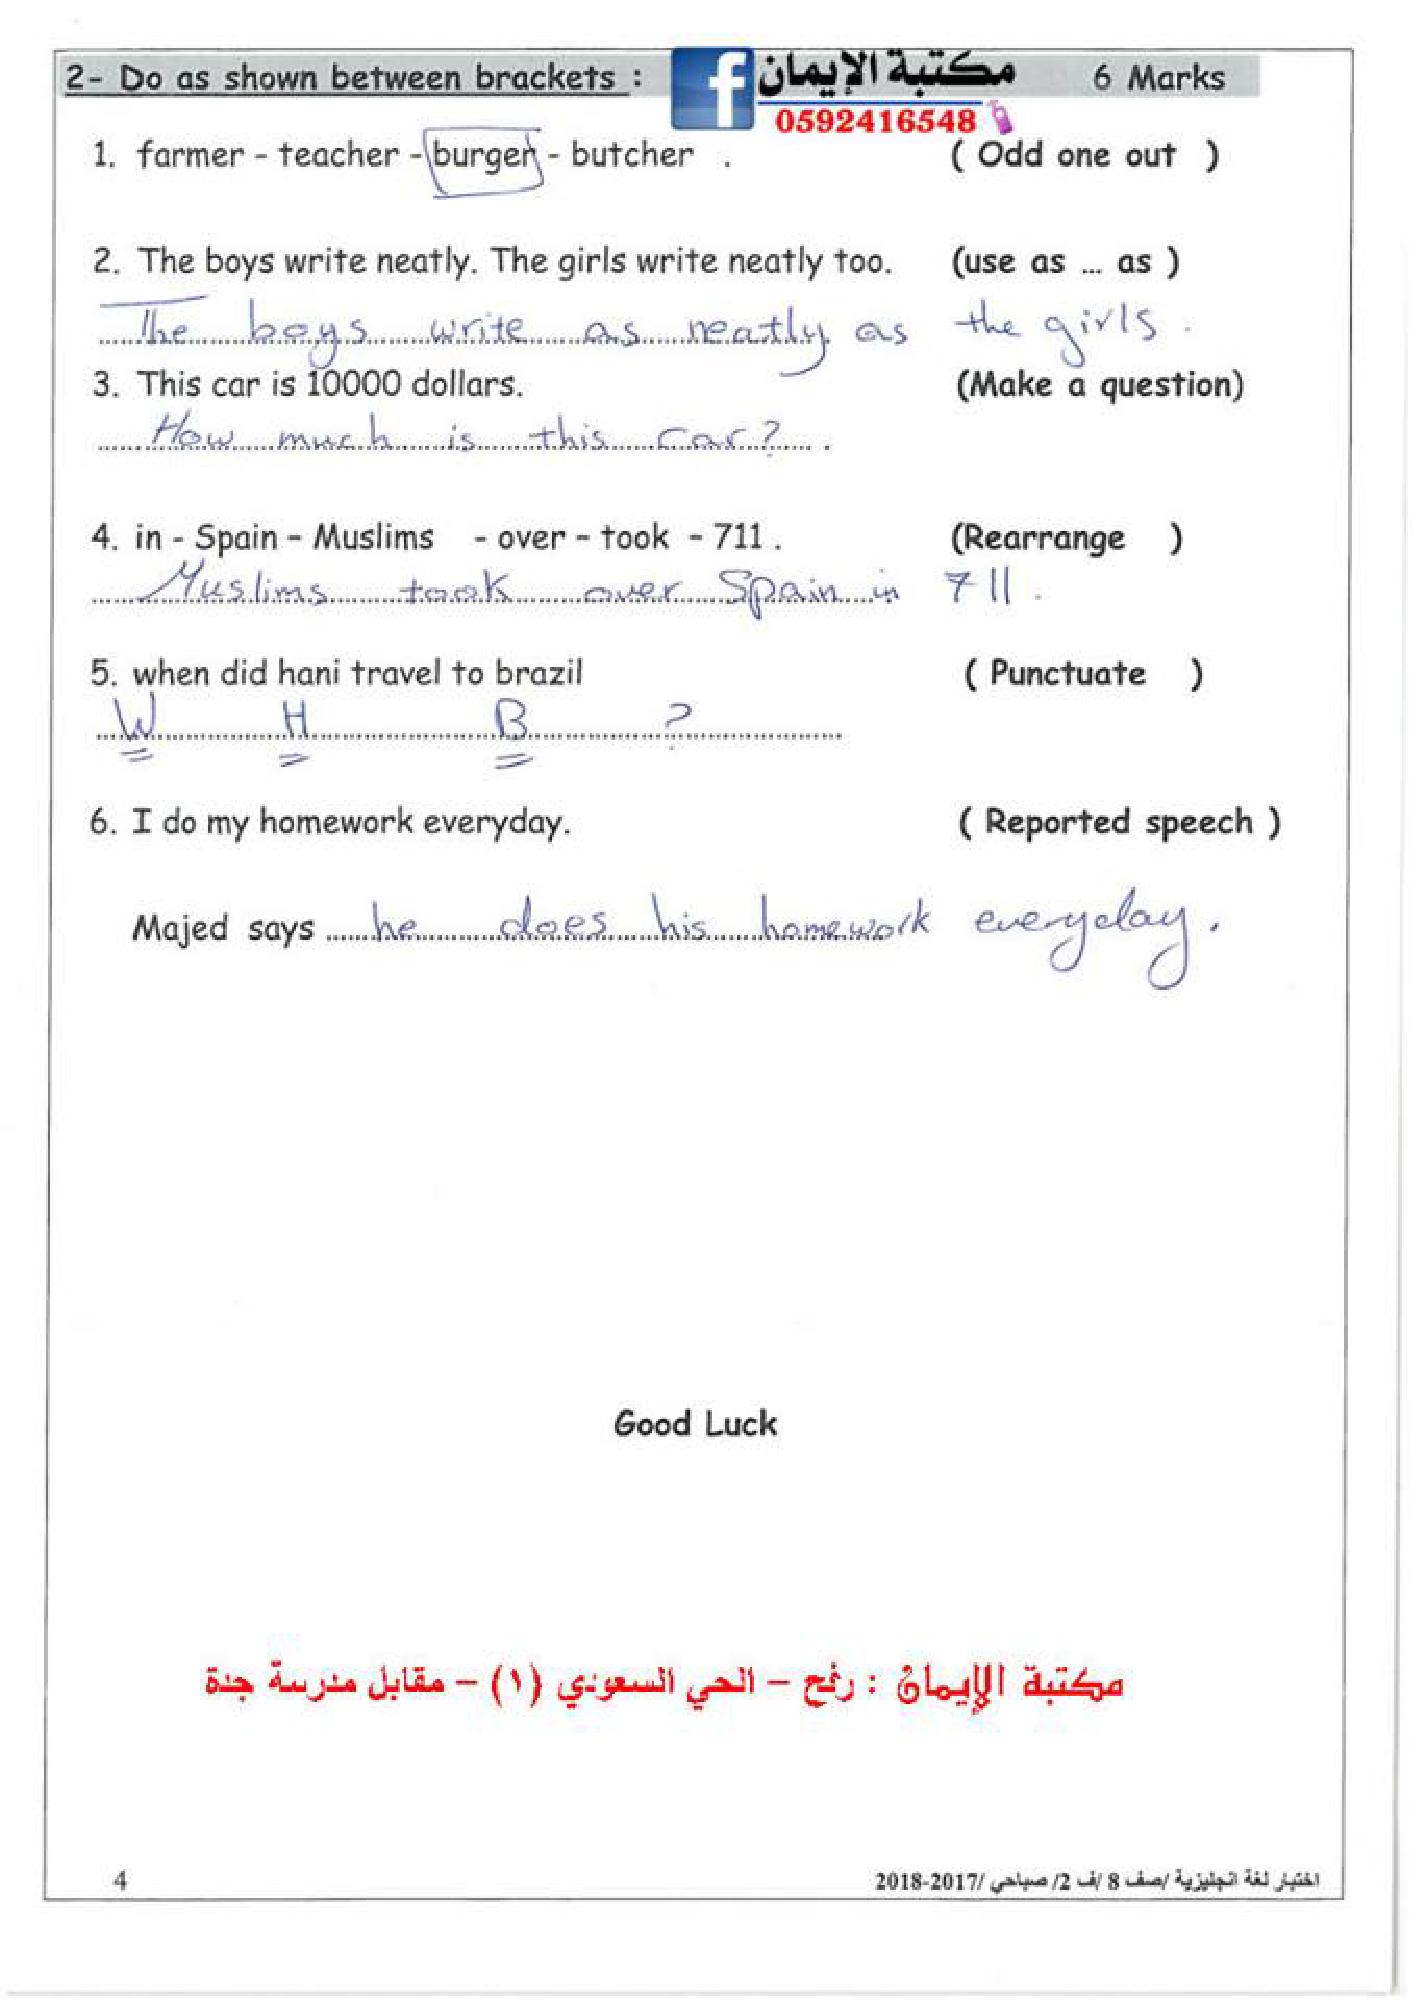 2- Do as shown between brackets : مكتبة الإيمان 6 Marks
0592416548
1. farmer - teacher - burger - butcher . ( Odd one out )
2. The boys write neatly. The girls write neatly too. (use as ... as )
The boys write as neatly as the girls .
3. This car is 10000 dollars. (Make a question)
How much is this car? .
4. in - Spain - Muslims - over - took - 711 . (Rearrange )
Muslims took over Spain in 711 .
5. when did hani travel to brazil ( Punctuate )
W H B ?
6. I do my homework everyday. ( Reported speech )
Majed says he does his homework everyday .
Good Luck
مكتبة الإيمان : رفح - الحي السعودي (١) - مقابل مدرسة جدة
4 اختبار لغة انجليزية /صف 8 /ف 2/ صباحي /2017-2018